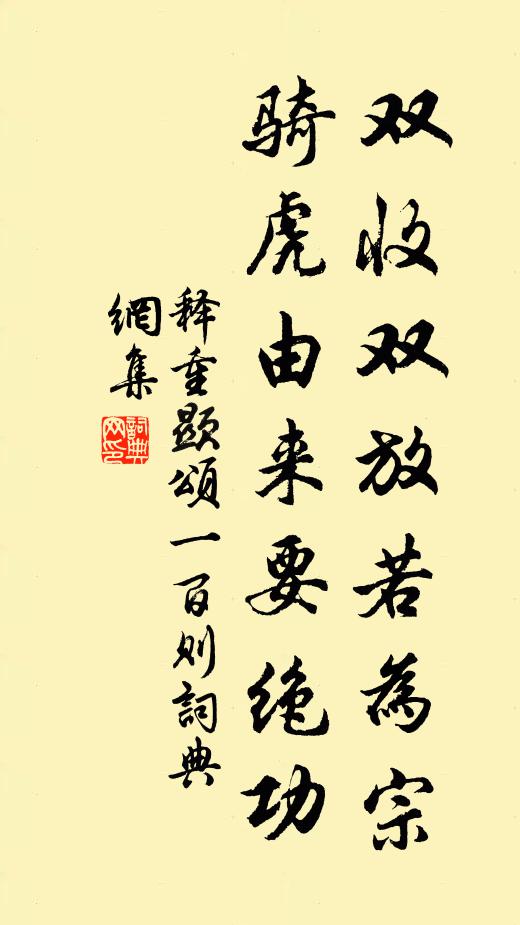 双收双放若為宗
骑虎由来要绝功
释重顯頌一百则詞典
網集
詞典
网印